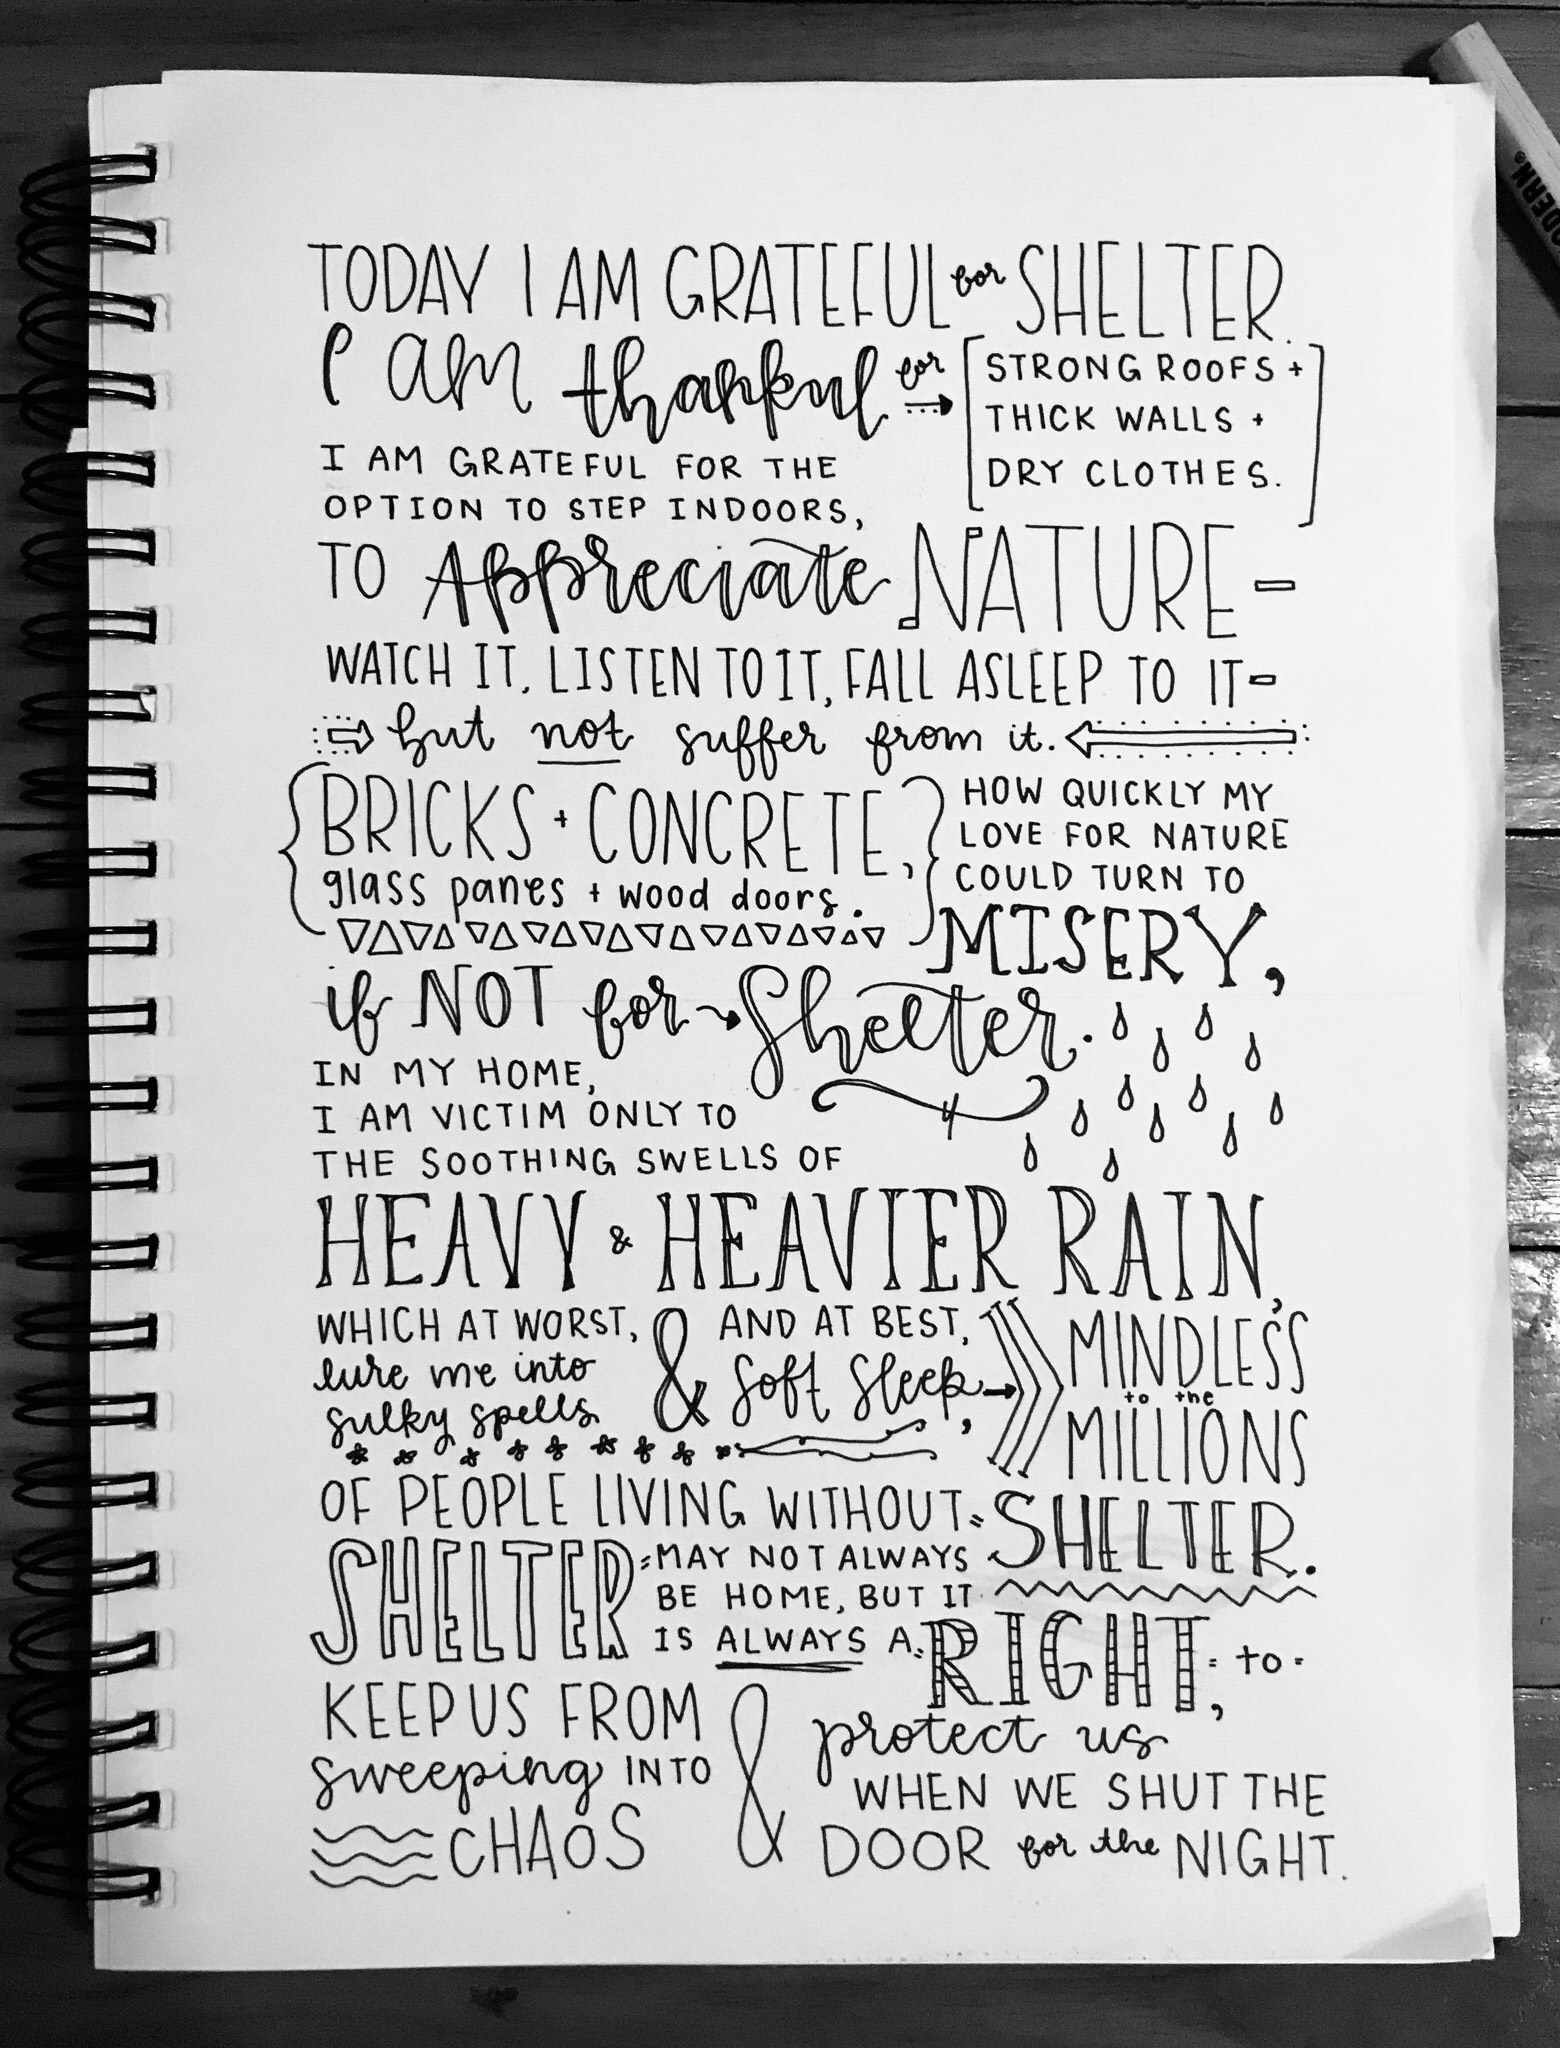 TODAY I AM GRATEFUL for SHELTER.
I am thankful for
STRONG ROOFS +
THICK WALLS +
DRY CLOTHES.
I AM GRATEFUL FOR THE
OPTION TO STEP INDOORS,
TO Appreciate NATURE -
WATCH IT, LISTEN TO IT, FALL ASLEEP TO IT -
but not suffer from it.
BRICKS + CONCRETE,
glass panes + wood doors.
HOW QUICKLY MY
LOVE FOR NATURE
COULD TURN TO
MISERY,
if NOT for Shelter.
IN MY HOME,
I AM VICTIM ONLY TO
THE SOOTHING SWELLS OF
HEAVY & HEAVIER RAIN,
WHICH AT WORST,
lure me into
sulky spells
&
AND AT BEST,
soft sleep,
MINDLESS
to the
MILLIONS
OF PEOPLE LIVING WITHOUT
SHELTER.
SHELTER
MAY NOT ALWAYS
BE HOME, BUT IT
IS ALWAYS A
RIGHT, to
KEEP US FROM
sweeping INTO
CHAOS
&
protect us
WHEN WE SHUT THE
DOOR for the NIGHT.